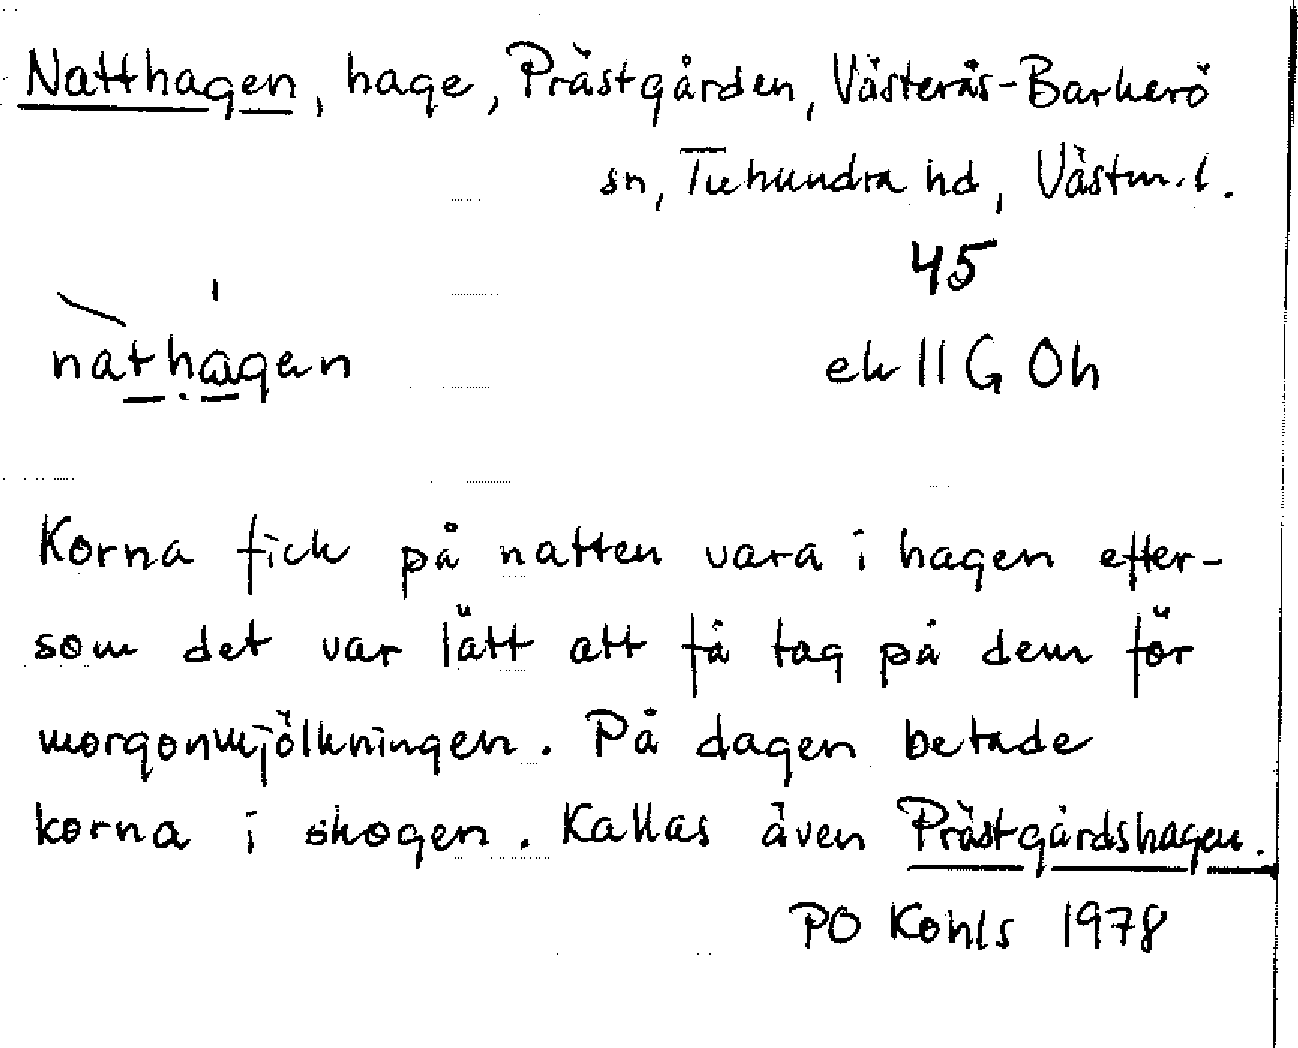 Natthagen, hage, Prästgården, Västerås-Barkerö
sn, Tuhundra hd, Västm.l.
45
nathagen
ek 11 G Oh
Korna fick på natten vara i hagen efter-
som det var lätt att få tag på dem för
morgonmjölkningen. På dagen betade
korna i skogen. Kallas även Prästgårdshagen.
PO Kohls 1978